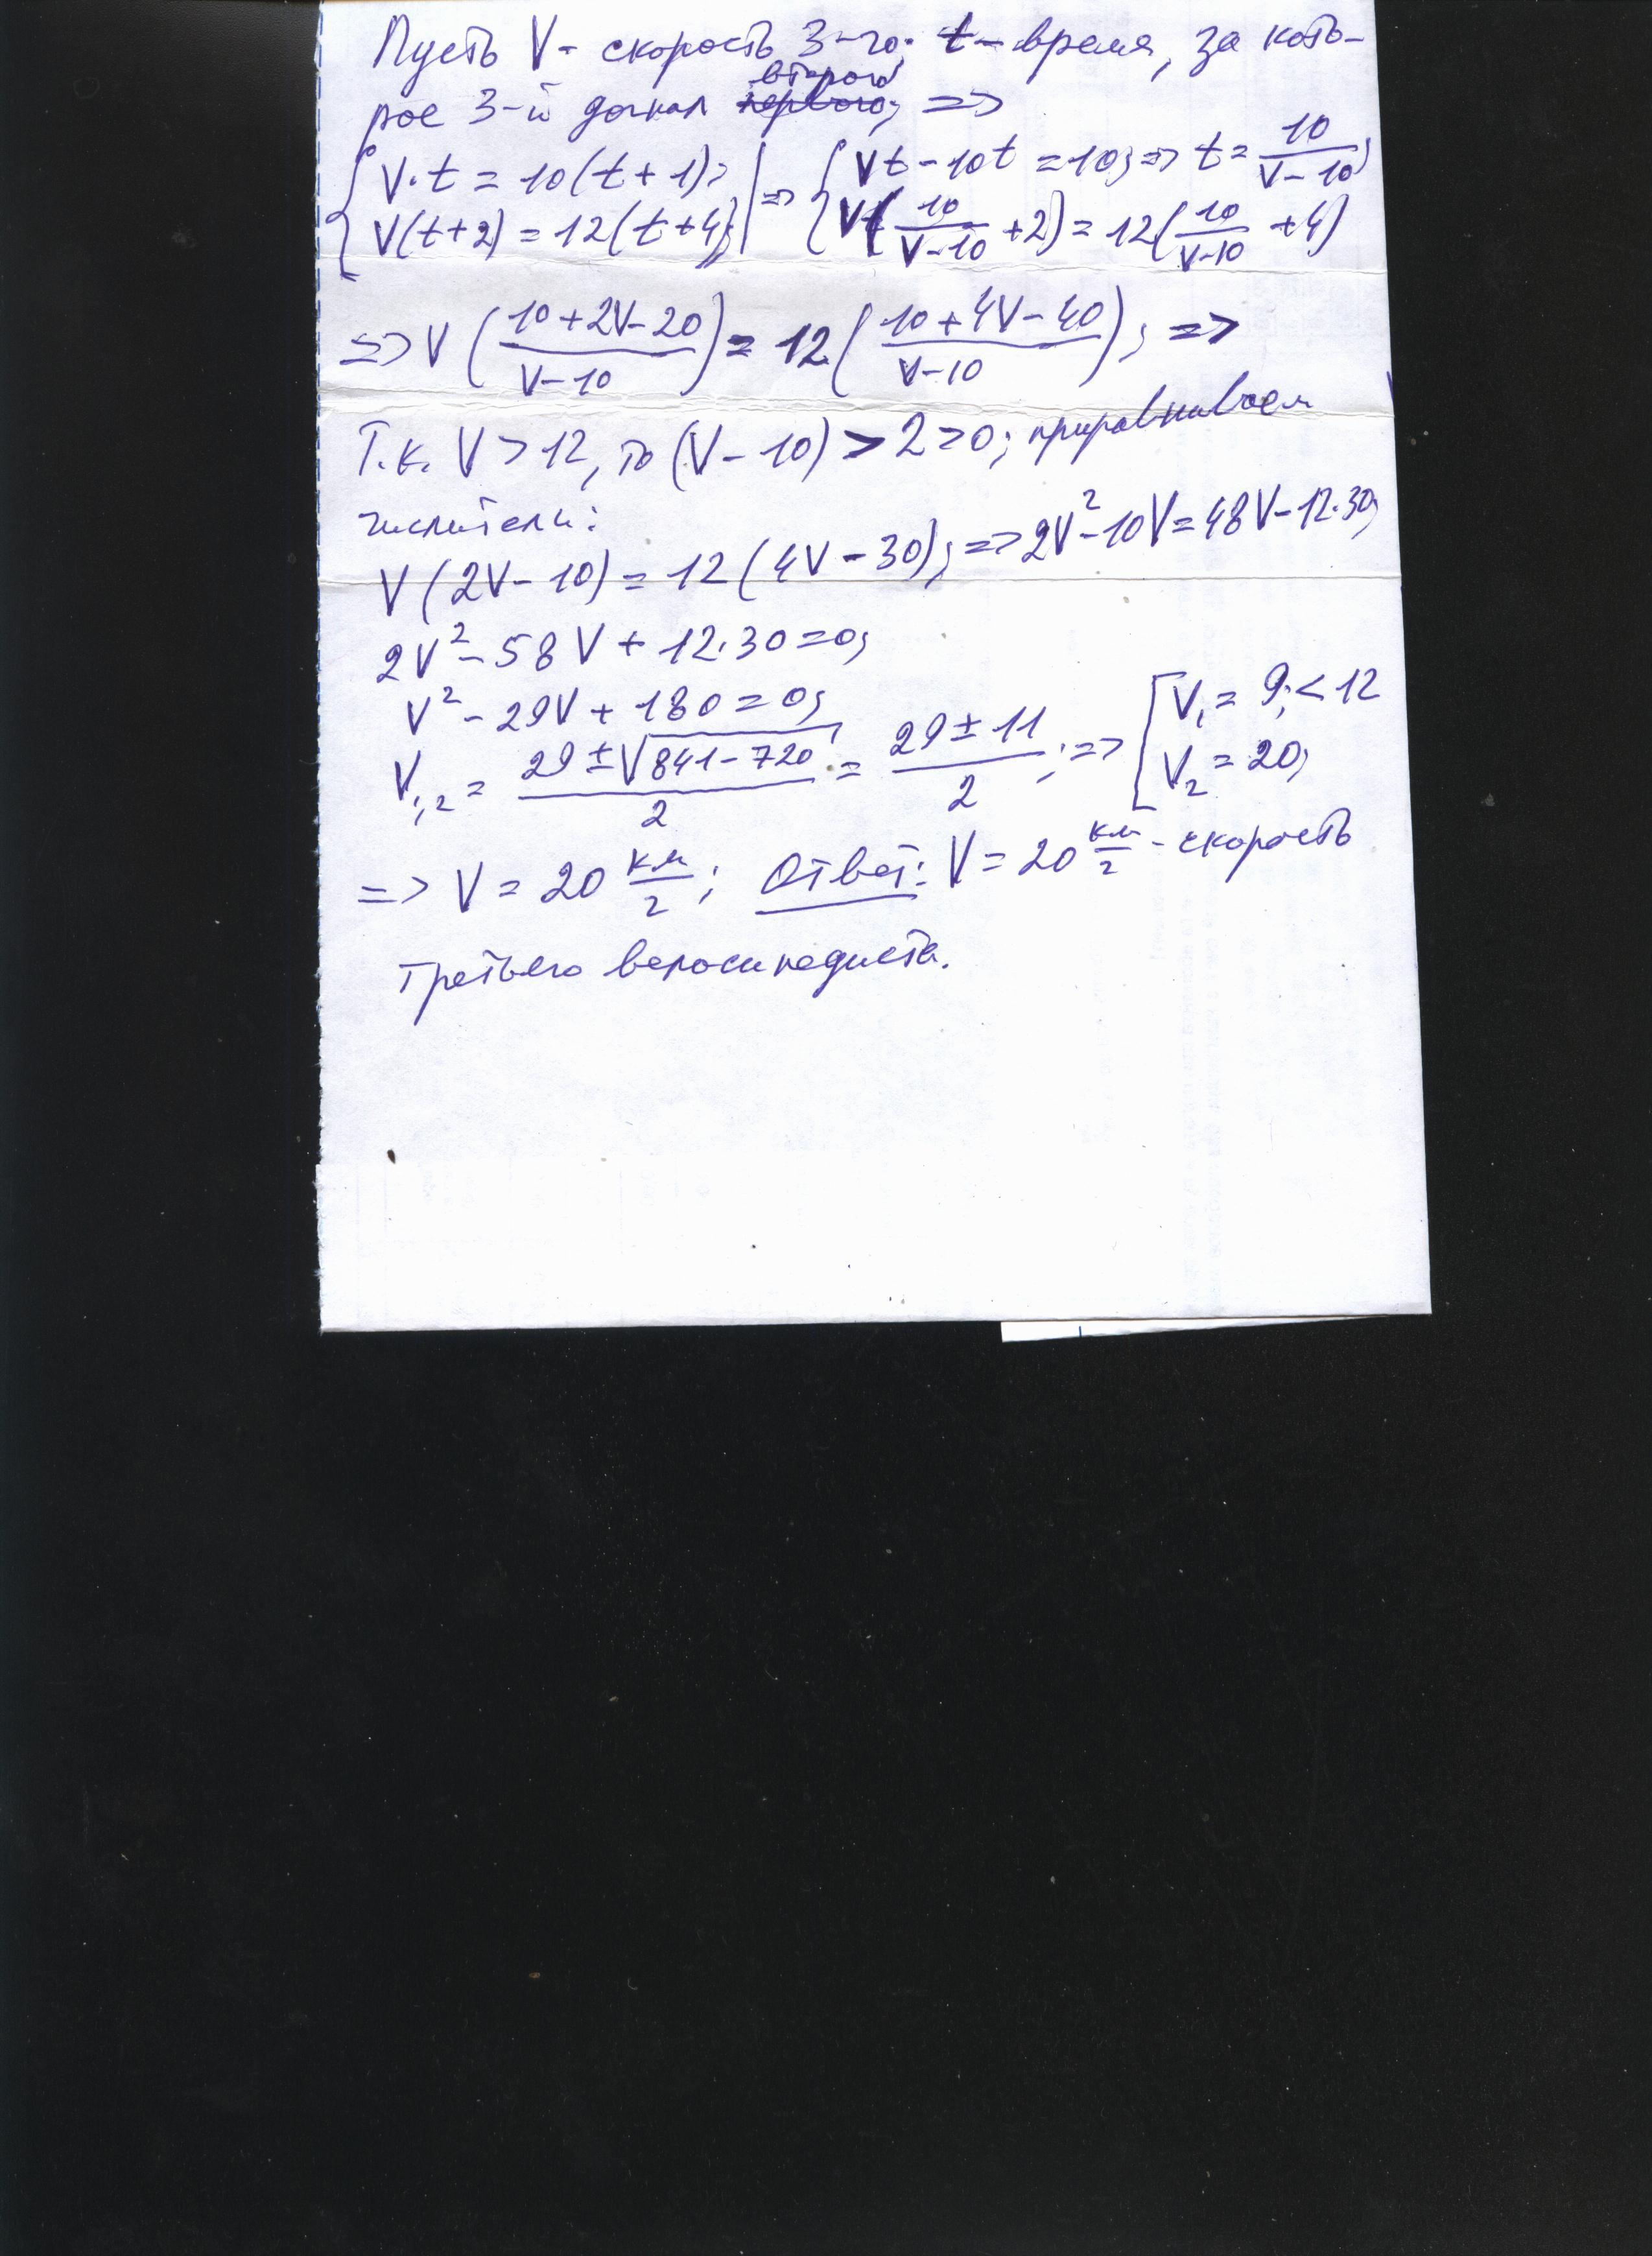 Пусть V - скорость 3-го; t - время, за кото-
второго
рое 3-й догнал первого; =>
{ V·t = 10(t+1); | => { Vt - 10t = 10; => t = 10/(V-10);
{ V(t+2) = 12(t+4); | { V(10/(V-10) + 2) = 12(10/(V-10) + 4)
=> V((10+2V-20)/(V-10)) = 12((10+4V-40)/(V-10)); =>
Т.к. V > 12, то (V-10) > 2 > 0; приравниваем
числители:
V(2V-10) = 12(4V-30); => 2V² - 10V = 48V - 12·30;
2V² - 58V + 12·30 = 0;
V² - 29V + 180 = 0;
V₁,₂ = (29 ± √(841-720))/2 = (29 ± 11)/2; => [ V₁ = 9; < 12
[ V₂ = 20;
=> V = 20 км/г; Ответ: V = 20 км/г - скорость
третьего велосипедиста.